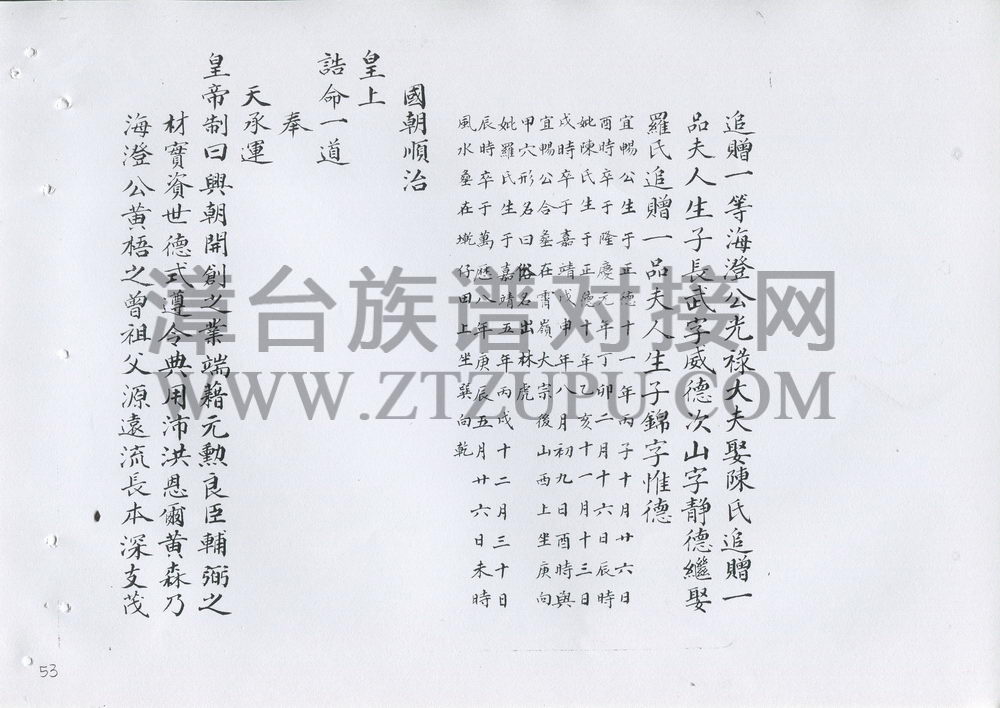 追贈一等海澄公光祿大夫娶陳氏追贈一
品夫人生子長武字威德次山字靜德繼娶
羅氏追贈一品夫人生子錦字惟德
宜暢公生于正德十一年丙子十月廿六日
酉時卒于隆慶元年丁卯二月十六日辰時
妣陳氏生于正德十年乙亥十一月十三日
戌時卒于嘉靖戊申年八月初九日酉時與
宜暢公合塟在霄嶺大宗後山西上坐庚向
甲穴形名曰俗名出林虎
妣羅氏生于嘉靖五年丙戌十二月三十日
辰時卒于萬歷八年庚辰五月廿六日未時
風水塟在墘仔田上坐巽向乾
國朝順治
皇上
誥命一道
奉
天承運
皇帝制曰興朝開創之業端藉元勲良臣輔弼之
材實資世德式遵令典用沛洪恩爾黃森乃
海澄公黃梧之曾祖父源遠流長本深支茂
53
漳台族谱对接网
WWW.ZTZUPU.COM